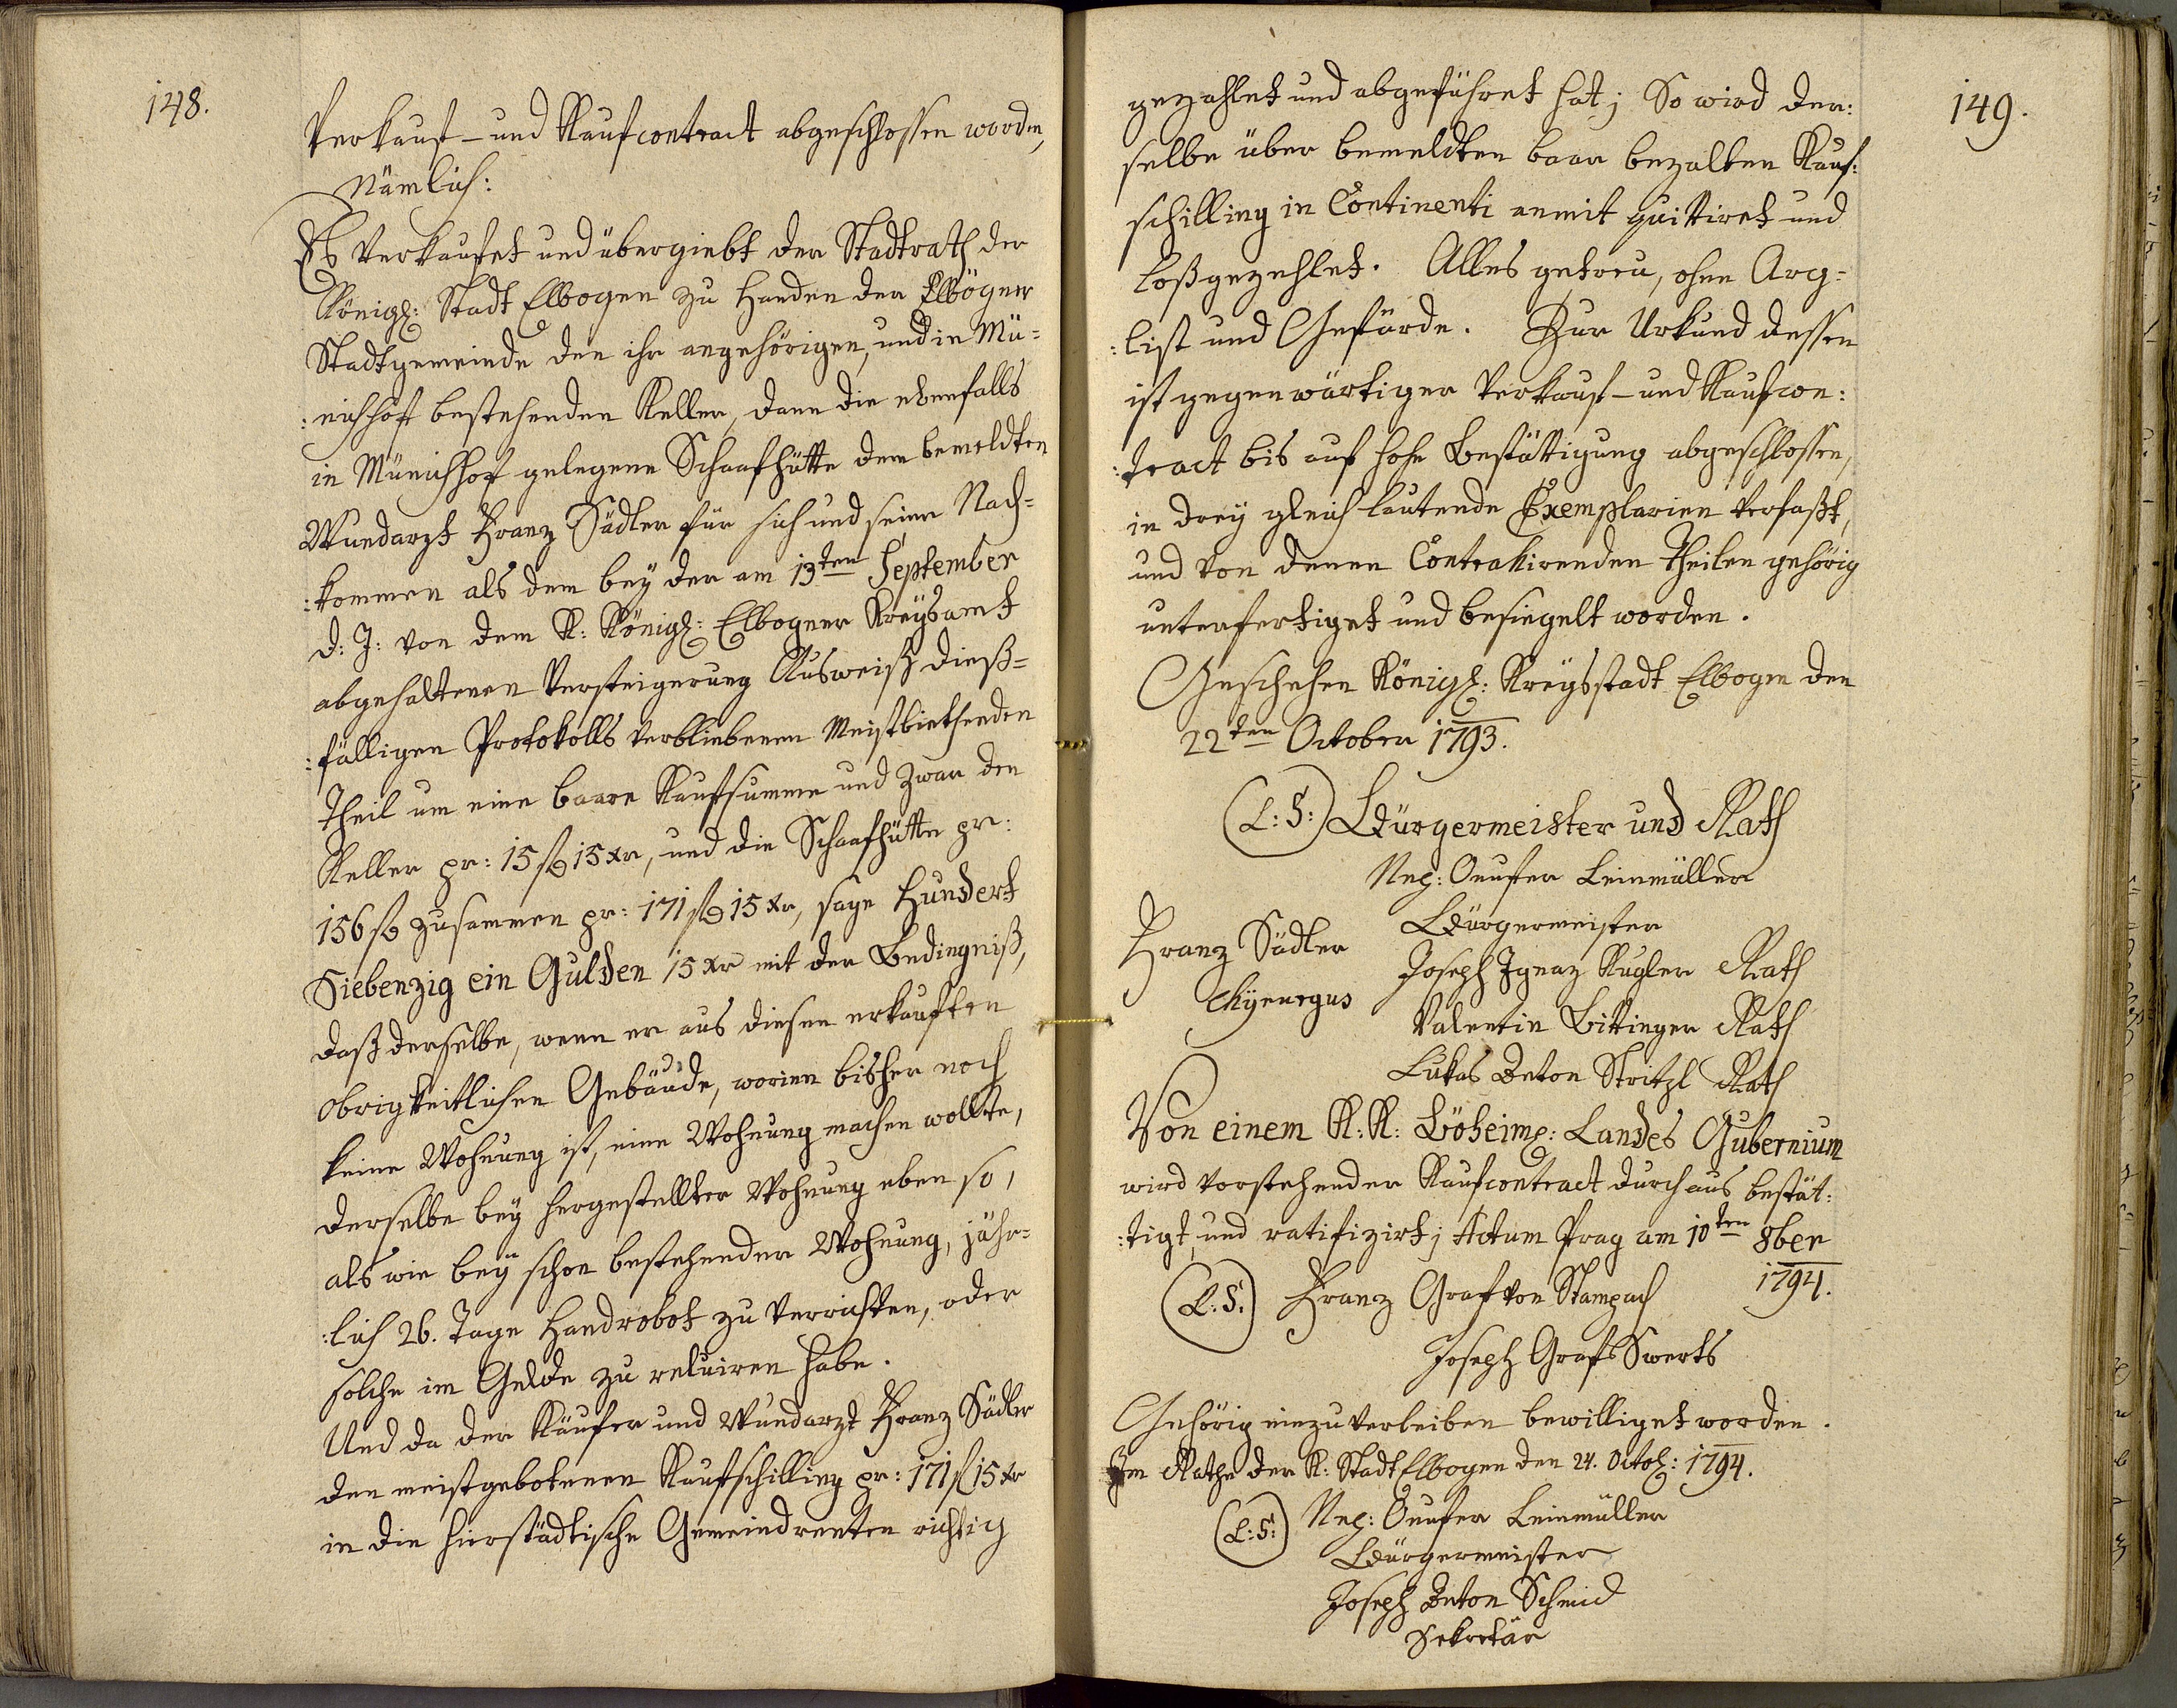 148.
Verkauf- und Kaufcontract abgeschlossen worden,
Nämlich:
Es verkaufet und übergiebt der Stadtrath der
Königl: Stadt Elbogen zu Handen der Elbögner
Stadtgemeinde den ihr angehörigen, und in Mü=
:nichhof bestehenden Keller, dann die ebenfalls
in Münichhof gelegene Schaafhütte dem bemeldten
Wundarzt Franz Sädler für sich und seine Nach=
:kommen als dem bey der am 13ten September
d: J: von dem K: Königl: Elbogner Kreysamt
abgehaltenen Versteigerung Ausweiß dieß=
:fälligen Protokolls verbliebenen Meistbiethenden
Theil um eine baare Kaufsumme und zwar den
Keller pr: 15 fl 15 xr, und die Schaafhütte pr:
156 fl zusammen pr: 171 fl 15 xr, sage Hundert
Siebenzig ein Gulden 15 xr mit der Bedingniß,
daß derselbe, wenn er aus diesen erkauften
obrigkeitlichen Gebäude, worinn bisher noch
keine Wohnung ist, eine Wohnung machen wollte,
derselbe bey hergestellter Wohnung eben so,
als wie bey schon bestehender Wohnung, jähr=
:lich 26. Tage Handrobot zu verrichten, oder
solche im Gelde zu reluiren habe.
Und da der Käufer und Wundarzt Franz Sädler
den meistgebotenen Kaufschilling pr: 171 fl 15 xr
in die hierstädtische Gemeindrenten richtig
149.
gezahlet und abgeführet hat; So wird der:
selbe über bemeldten baar bezalten Kauf:
schilling in Continenti anmit quittiret und
loßgezehlet. Alles getreu, ohne Arg=
:list und Gefärde. Zur Urkund dessen
ist gegenwärtiger Verkauf- und Kaufcon:
:tract bis auf hohe Bestättigung abgeschlossen,
in drey gleich lautende Exemplarien verfaßt,
und von denen Contrahirenden Theilen gehörig
unterfertiget und besiegelt worden.
Geschehen Königl: Kreysstadt Elbogen den
22ten October 1793.
(L: S:) Bürgermeister und Rath
Neg: Onufer Leinmüller
Bürgermeister
Franz Sädler
Chyrurgus
Joseph Ignaz Kugler Rath
Valentin Bittinger Rath
Lukas Anton Stritzl Rath
Von einem K: K: Böheim: Landes Gubernium
wird vorstehender Kaufcontract durchaus bestät:
:tigt, und ratifizirt; Actum Prag am 10ten 8ber
1794.
(L: S:) Franz Graf von Stampach
Joseph Graf Swerts
Gehörig einzuverleiben bewilliget worden.
Im Rathe der K: Stadt Elbogen den 24. Octob: 1794.
(L: S:) Neg: Onufer Leinmüller
Bürgermeister
Joseph Anton Schmid
Sekretär